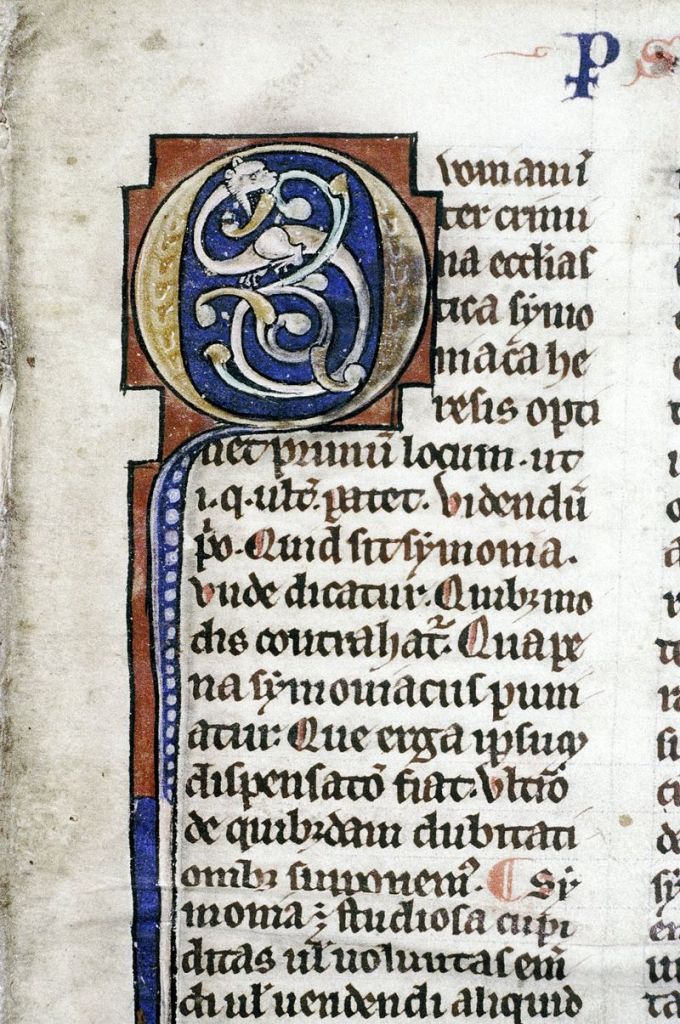 P S
Q
uoniam iñ
ter crimi
na ecclias
tica symo
niaca he
resis opti
net primũ locum. ut
i. q. ult̃. patet. Videndũ
Quid sit symonia.
Vnde dicatur. Quibꝫ mo
dis contrahat̃. Qua pe
na symoniacus puni
atur. Que erga ipsuqꝫ
dispensatõ fiat. Vltiõ
de quibꝫdam dubitati
onibꝫ supponemꝰ. ¶ Sy
monia ÷ studiosa cupi
ditas ul̃ uoluntas em̃
di ul̃ uendendi aliquid